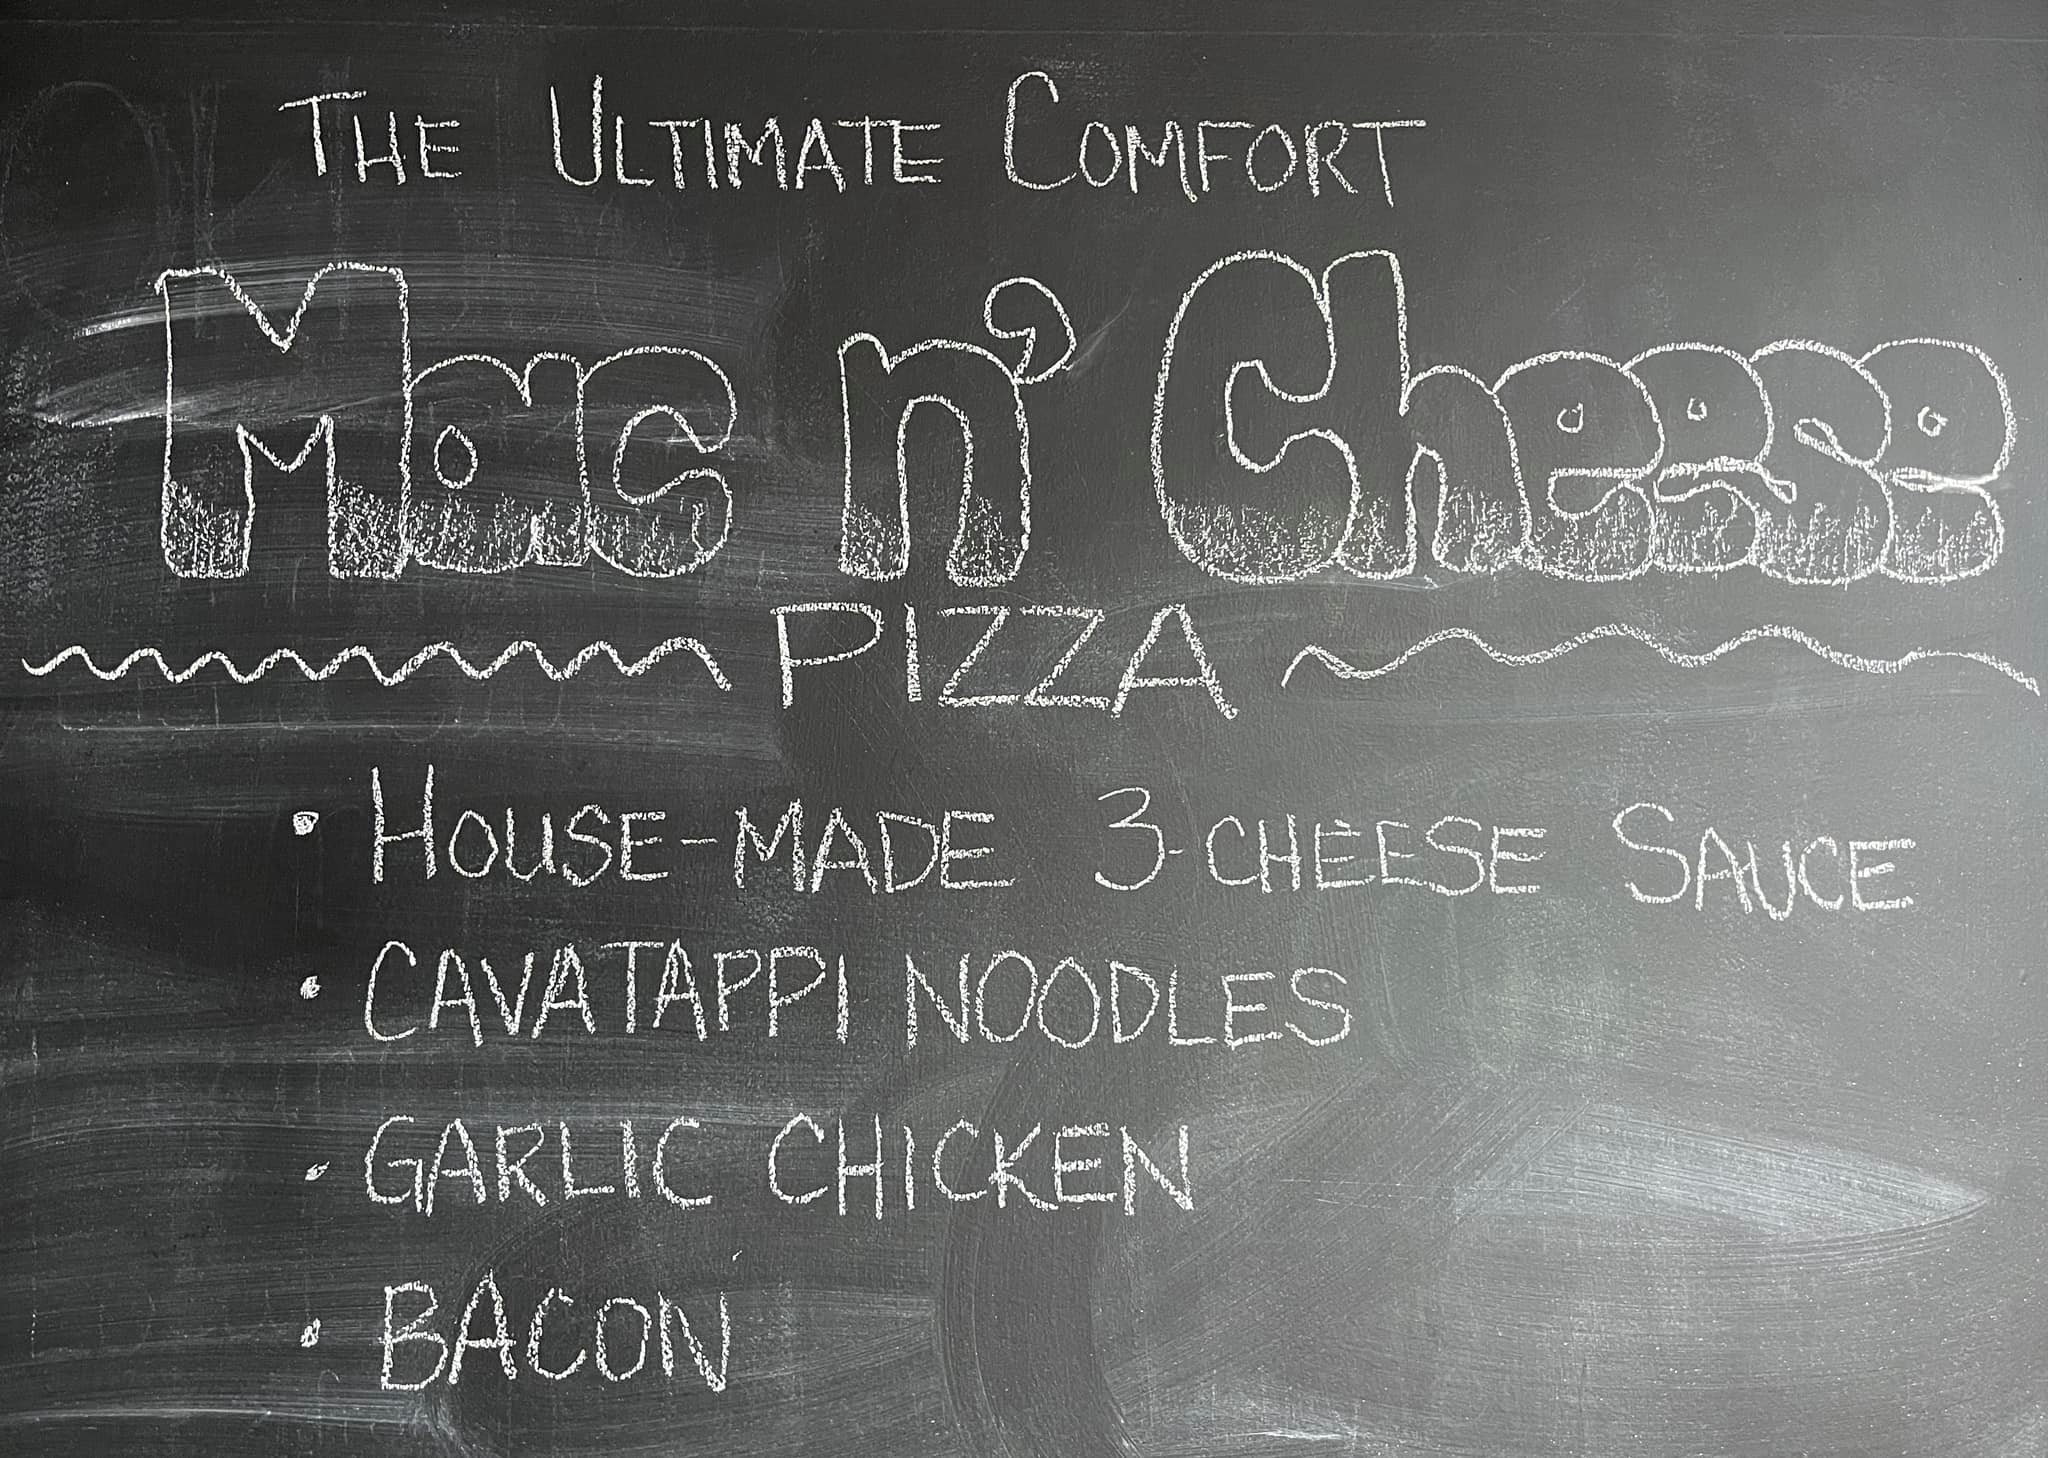 The Ultimate Comfort
Mac n' Cheese
PIZZA
• House-made 3-cheese Sauce
• CAVATAPPI NOODLES
• GARLIC CHICKEN
• BACON